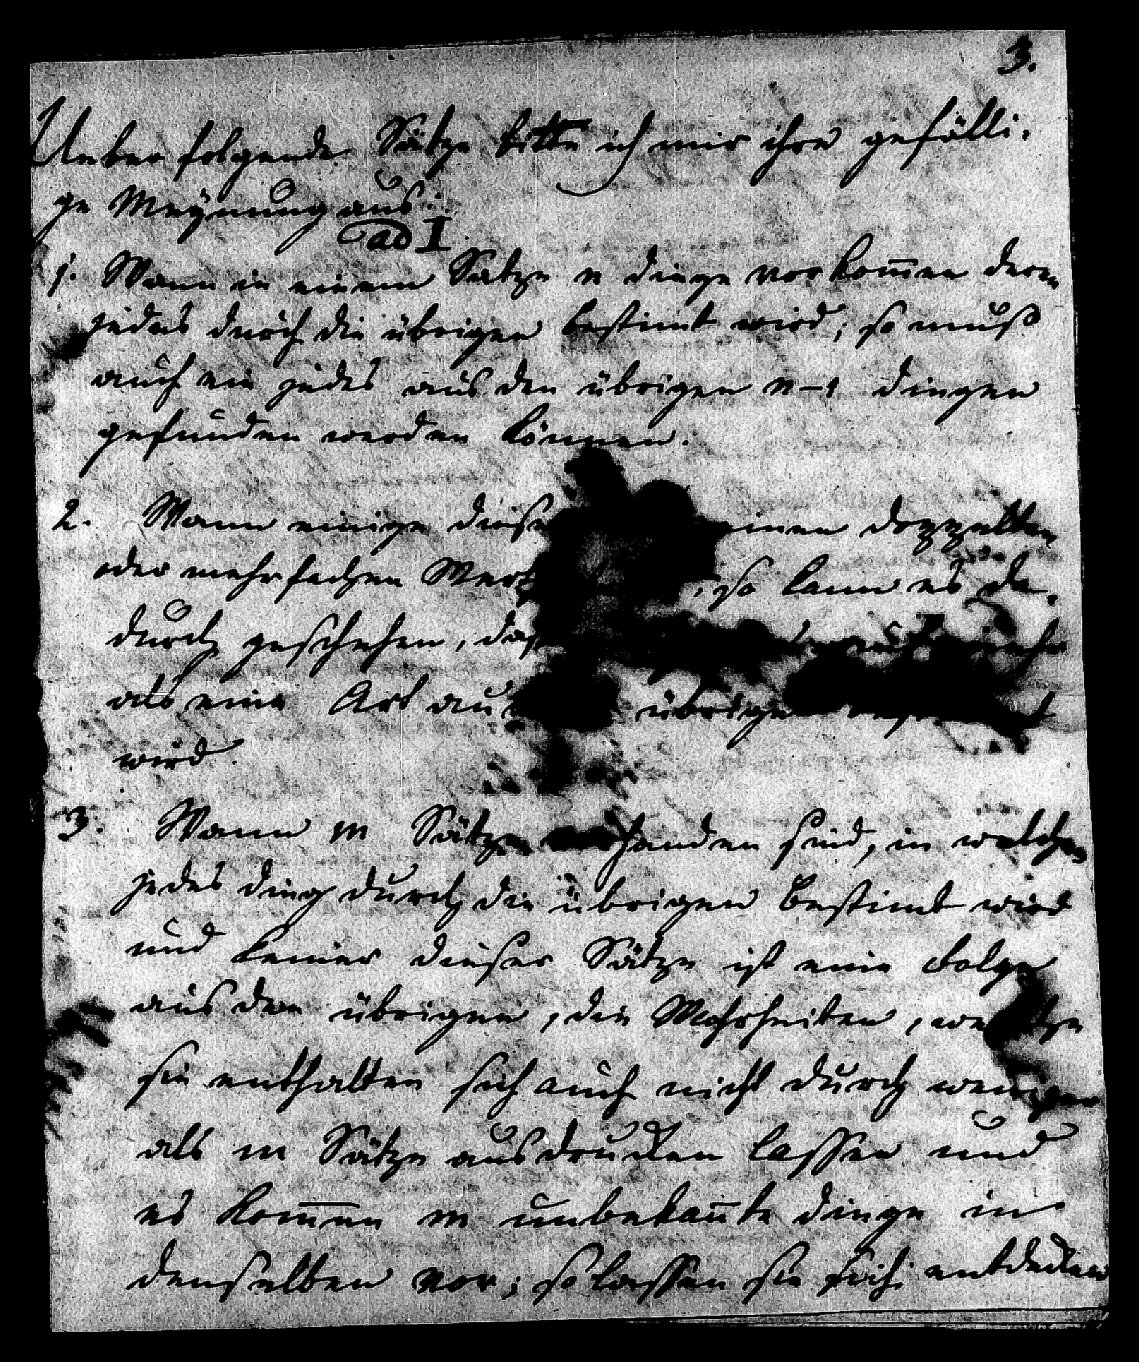 3.
Ueber folgende Sätze bitte ich mir ihre gefälli-
ge Meynung aus:
ad I
1. Wann in einem Satze n dinge vorkom̅en deren
jedes durch die übrigen bestimt wird; so muß
auch ein jedes aus den übrigen n–1 dingen
gefunden werden können.
2. Wann einige dieser einen doppelten
oder mehrfachen Wert ; so kann es da-
durch geschehen, daß nicht mehr
als eine Art aus übrigen
wird.
3. Wann m Sätze vorhanden sind, in welchen
jedes ding durch die übrigen bestimt wird
und keiner dieser Sätze ist eine Folge
aus den übrigen, die Wahrheiten, welche
sie enthalten sich auch nicht durch weniger
als m Sätze ausdrucken lassen und
es kom̅en m unbekan̅te dinge in
denselben vor; so lassen sie sich entdecken